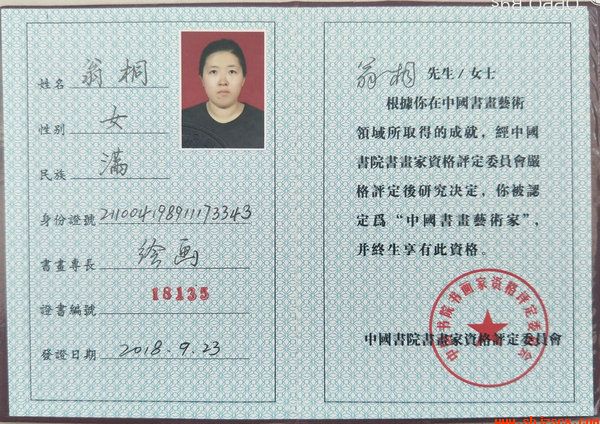 姓名 翁桐
性别 女
民族 满
身份證號 211004198911173343
書畫專長 绘画
證書編號 18135
發證日期 2018.9.23
翁桐 先生/女士
根據你在中國書畫藝術
領域所取得的成就，經中國
書院書畫家資格評定委員會嚴
格評定後研究决定，你被認
定爲“中國書畫藝術家”，
并終生享有此資格。
中國書院書畫家資格評定委員會
中国书院书画家资格评定委员会